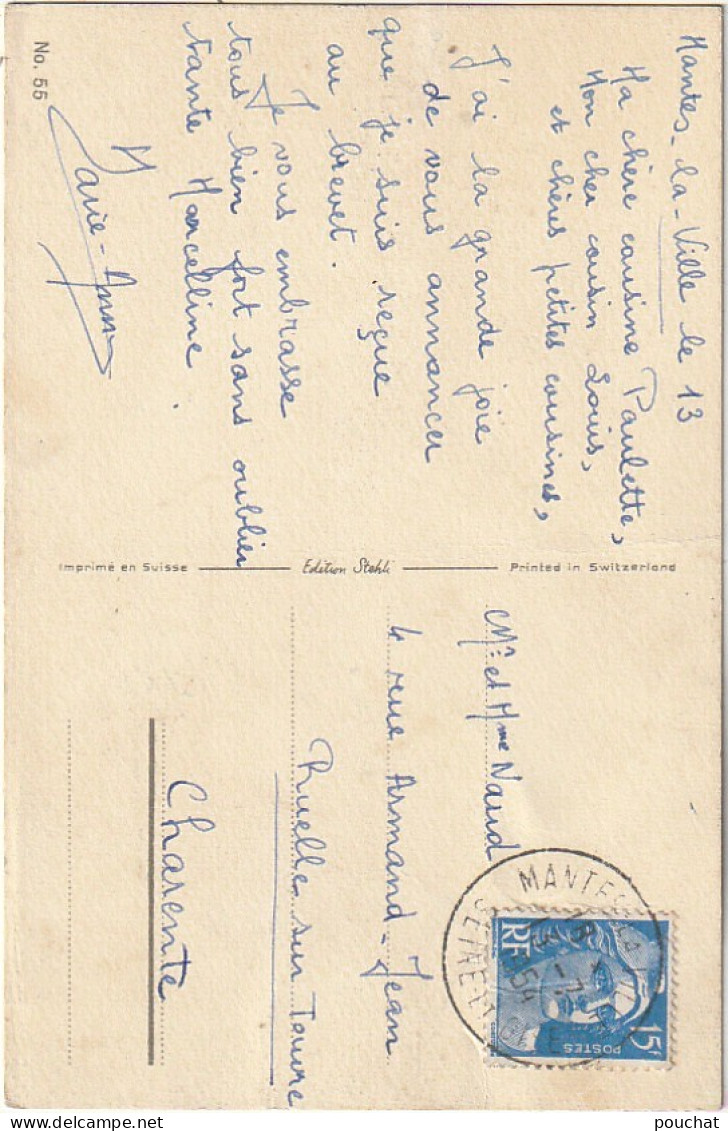 Mantes-la-Ville le 13
Ma chère cousine Paulette,
Mon cher cousin Louis,
et chères petites cousines,
J'ai la grande joie
de vous annoncer
que je suis reçue
au brevet.
Je vous embrasse
tous bien fort sans oublier
tante Marcelline.
Marie-Anne
No. 55
Imprimé en Suisse Edition Stehli Printed in Switzerland
Mr et Mme Naud
4 rue Armand-Jean
Ruelle sur Touvre
Charente
MANTES-LA-VILLE
13-7
SEINE-ET-OISE
RF
15F
POSTES
pouchat